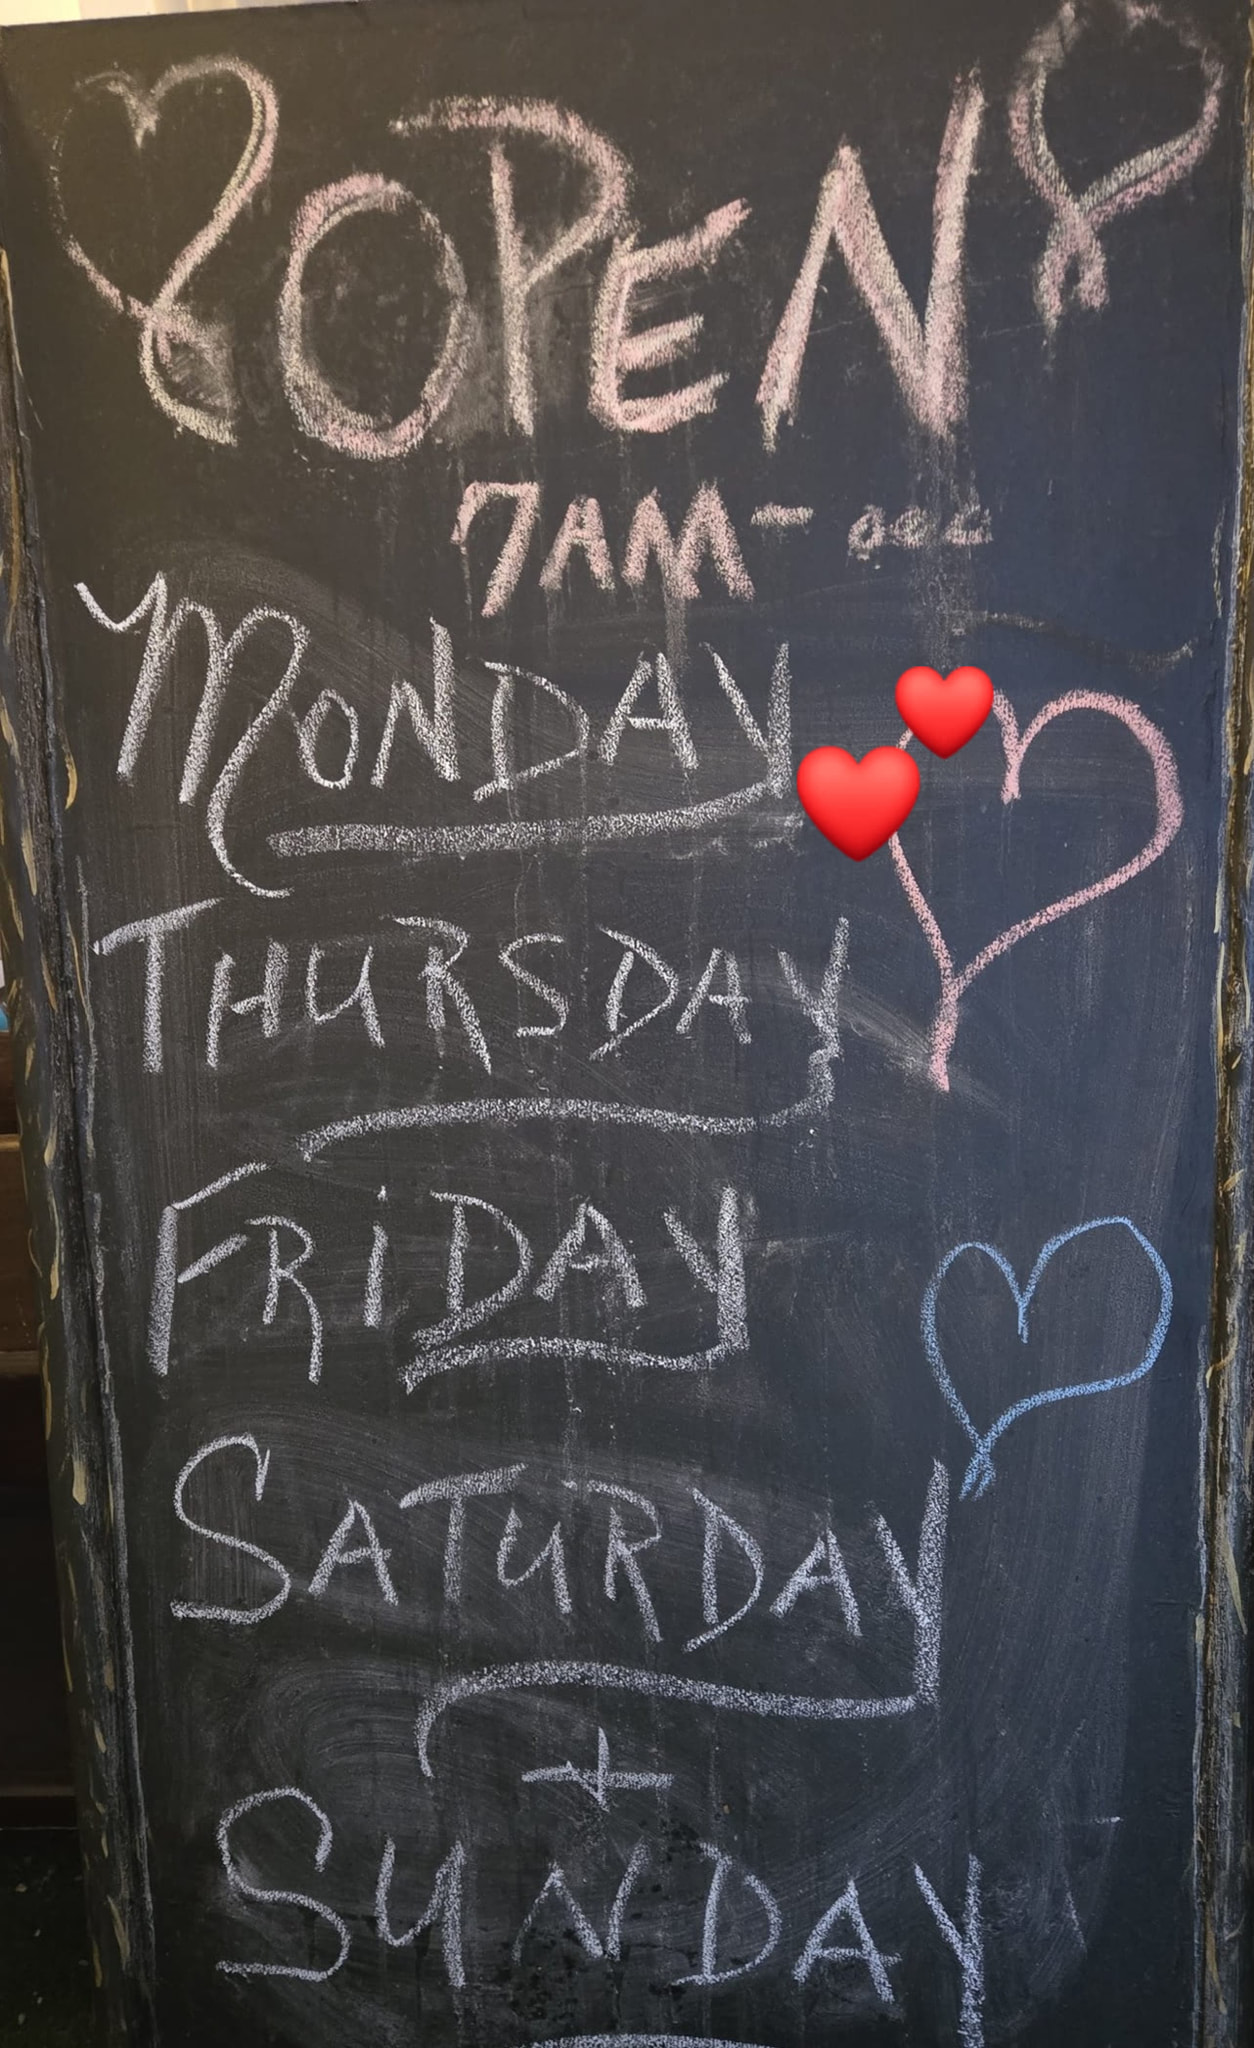 OPEN
7AM-
MONDAY
THURSDAY
FRiDAY
SATURDAY
+
SUNDAY